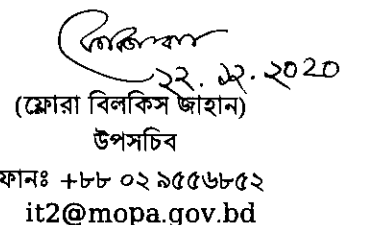 ২২.১২.২০২০
(ফ্লোরা বিলকিস জাহান)
উপসচিব
ফোনঃ +৮৮ ০২ ৯৫৫৬৮৫২
it2@mopa.gov.bd